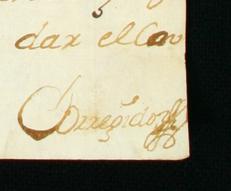 dar el Cav
Corregidor